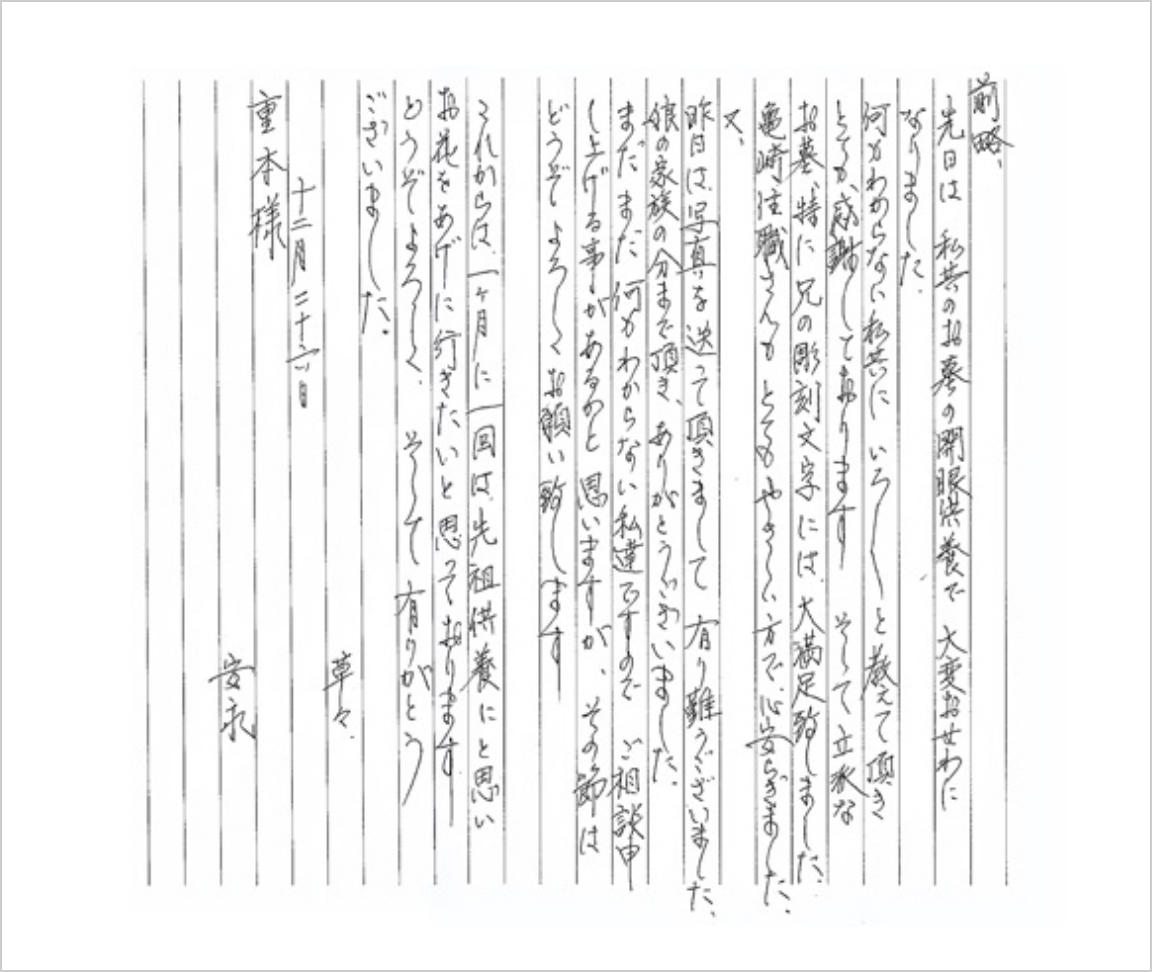 前略、
先日は 私共のお墓の開眼供養で 大変おせわに
なりました。
何もわからない私共に いろいろと教えて頂き
とても、感謝しております そして 立派な
お墓、特に兄の彫刻文字には、大満足致しました。
亀崎住職さんも とてもやさしい方で、心安らぎました。
又、
昨日は、写真を送って頂きまして 有り難うございました。
娘の家族の分まで頂き、ありがとうございました。
まだまだ何もわからない私達ですので ご相談申
し上げる事があるかと思いますが、その節は
どうぞよろしくお願い致します
これからは、一ヶ月に一回は、先祖供養にと思い
お花をあげに行きたいと思っております
どうぞよろしく、 そして 有りがとう
ございました。
草々、
十二月二十六日
重本様
安永